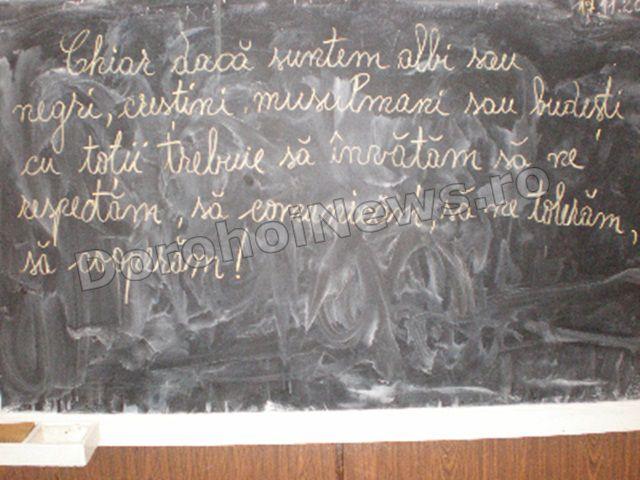 17.11.20
Chiar dacă suntem albi sau
negri, creștini, musulmani sau budiști
cu toții trebuie să învățăm să ne
respectăm, să comunicăm, să ne tolerăm,
să cooperăm!
DorohoiNews.ro